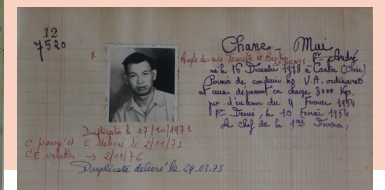 12
7520
Chane-Mui
dit André
né le 16 Décembre 1918 à Canton (Chine)
Permis de conduire les V.A. ordinaires
et ceux dépassant en charge 3000 Kgs.
par décision du 4 Février 1954
St Denis, le 10 Février 1954
Le chef de la 1ère Division
Duplicata le 27/10/1971
E délivré le 2/11/71
CE valable → 2/11/76
Duplicata délivré le 24.03.75